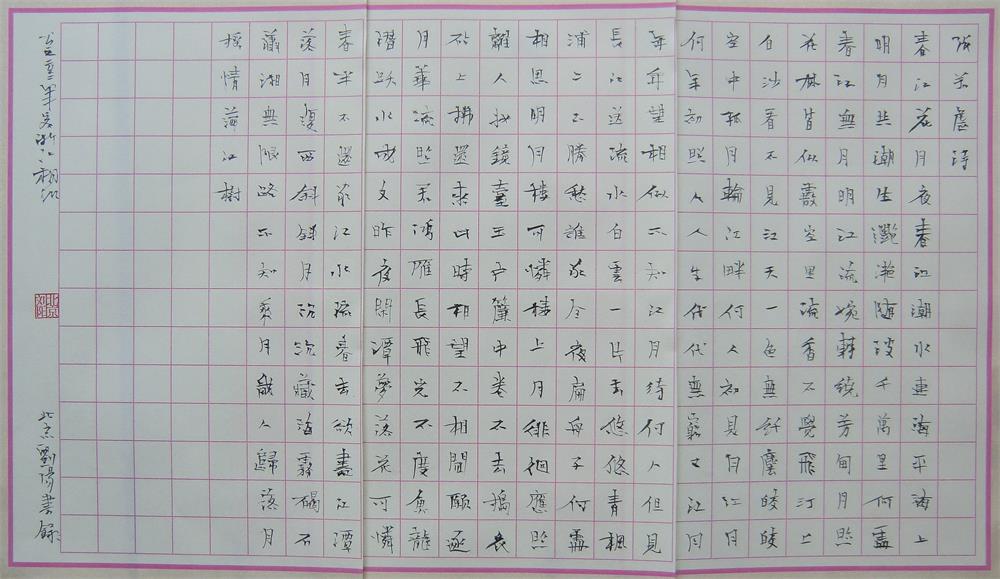 張若虛詩
春江花月夜春江潮水連海平海上
明月共潮生灩灩隨波千萬里何處
春江無月明江流婉轉繞芳甸月照
花林皆似霰空里流霜不覺飛汀上
白沙看不見江天一色無纖塵皎皎
空中孤月輪江畔何人初見月江月
何年初照人人生代代無窮已江月
年年望相似不知江月待何人但見
長江送流水白雲一片去悠悠青楓
浦上不勝愁誰家今夜扁舟子何處
相思明月樓可憐樓上月徘徊應照
離人妝鏡臺玉戶簾中卷不去搗衣
砧上拂還來此時相望不相聞願逐
月華流照君鴻雁長飛光不度魚龍
潛躍水成文昨夜閑潭夢落花可憐
春半不還家江水流春去欲盡江潭
落月復西斜斜月沉沉藏海霧碣石
瀟湘無限路不知乘月幾人歸落月
搖情滿江樹
北京劉陽書錄